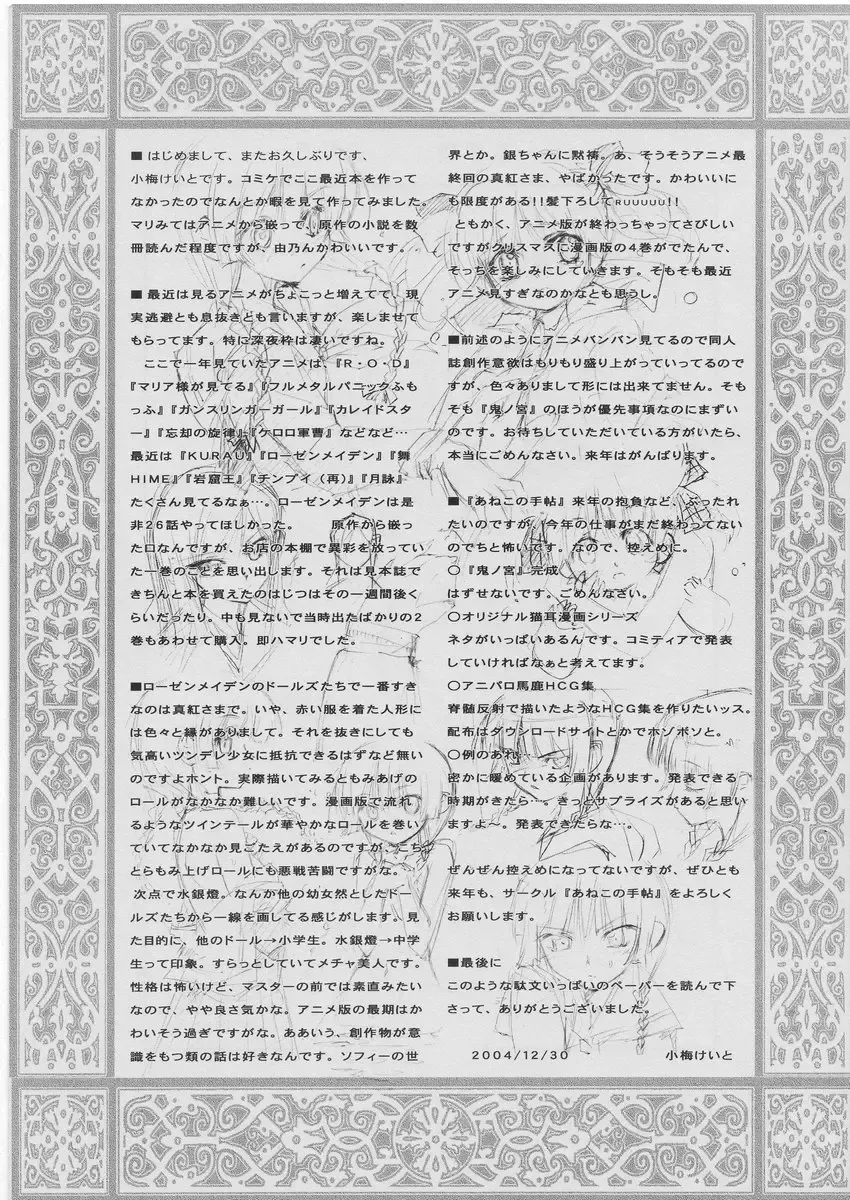 ■はじめまして、またお久しぶりです、
小梅けいとです。コミケでここ最近本を作って
なかったのでなんとか暇を見て作ってみました。
マリみてはアニメから嵌って、原作の小説を数
冊読んだ程度ですが、由乃んかわいいです。
■最近は見るアニメがちょこっと増えてて、現
実逃避とも息抜きとも言いますが、楽しませて
もらってます。特に深夜枠は凄いですね。
ここで一年見ていたアニメは、『R・O・D』
『マリア様が見てる』『フルメタルパニックふも
っふ』『ガンスリンガーガール』『カレイドスタ
ー』『忘却の旋律』『ケロロ軍曹』などなど…
最近は『KURAU』『ローゼンメイデン』『舞
HIME』『岩窟王』『チンプイ(再)』『月詠』
たくさん見てるなぁ…。ローゼンメイデンは是
非26話やってほしかった。 原作から嵌っ
た口なんですが、お店の本棚で異彩を放ってい
た一巻のことを思い出します。それは見本誌で
きちんと本を買えたのはじつはその一週間後く
らいだったり。中も見ないで当時出たばかりの2
巻もあわせて購入。即ハマリでした。
■ローゼンメイデンのドールズたちで一番すき
なのは真紅さまで。いや、赤い服を着た人形に
は色々と縁がありまして。それを抜きにしても
気高いツンデレ少女に抵抗できるはずなど無い
のですよホント。実際描いてみるともみあげの
ロールがなかなか難しいです。漫画版で流れ
るようなツインテールが華やかなロールを巻い
ていてなかなか見ごたえがあるのですが、こち
とらもみ上げロールにも悪戦苦闘ですがな。
次点で水銀燈。なんか他の幼女然としたドー
ルズたちから一線を画してる感じがします。見
た目的に、他のドール→小学生。水銀燈→中学
生って印象。すらっとしていてメチャ美人です。
性格は怖いけど、マスターの前では素直みたい
なので、やや良さ気かな。アニメ版の最期はか
わいそう過ぎですがな。ああいう、創作物が意
識をもつ類の話は好きなんです。ソフィーの世
界とか。銀ちゃんに黙祷。あ、そうそうアニメ最
終回の真紅さま、やばかったです。かわいいに
も限度がある!!髪下ろしてRUUUUU!!
ともかく、アニメ版が終わっちゃってさびしい
ですがクリスマスに漫画版の4巻がでたんで、
そっちを楽しみにしていきます。そもそも最近
アニメ見すぎなのかなとも思うし。
■前述のようにアニメバンバン見てるので同人
誌創作意欲はもりもり盛り上がっていってるので
すが、色々ありまして形には出来てません。そも
そも『鬼ノ宮』のほうが優先事項なのにまずい
のです。お待ちしていただいている方がいたら、
本当にごめんなさい。来年はがんばります。
■『あねこの手帖』来年の抱負など、ぶったれ
たいのですが、今年の仕事がまだ終わってない
のでちと怖いです。なので、控えめに。
○『鬼ノ宮』完成
はずせないです。ごめんなさい。
○オリジナル猫耳漫画シリーズ
ネタがいっぱいあるんです。コミティアで発表
していければなぁと考えてます。
○アニパロ馬鹿HCG集
脊髄反射で描いたようなHCG集を作りたいッス。
配布はダウンロードサイトとかでホソボソと。
○例のあれ…
密かに暖めている企画があります。発表できる
時期がきたら…。きっとサプライズがあると思い
ますよ~。発表できたらな…。
ぜんぜん控えめになってないですが、ぜひとも
来年も、サークル『あねこの手帖』をよろしく
お願いします。
■最後に
このような駄文いっぱいのペーパーを読んで下
さって、ありがとうございました。
2004/12/30 小梅けいと